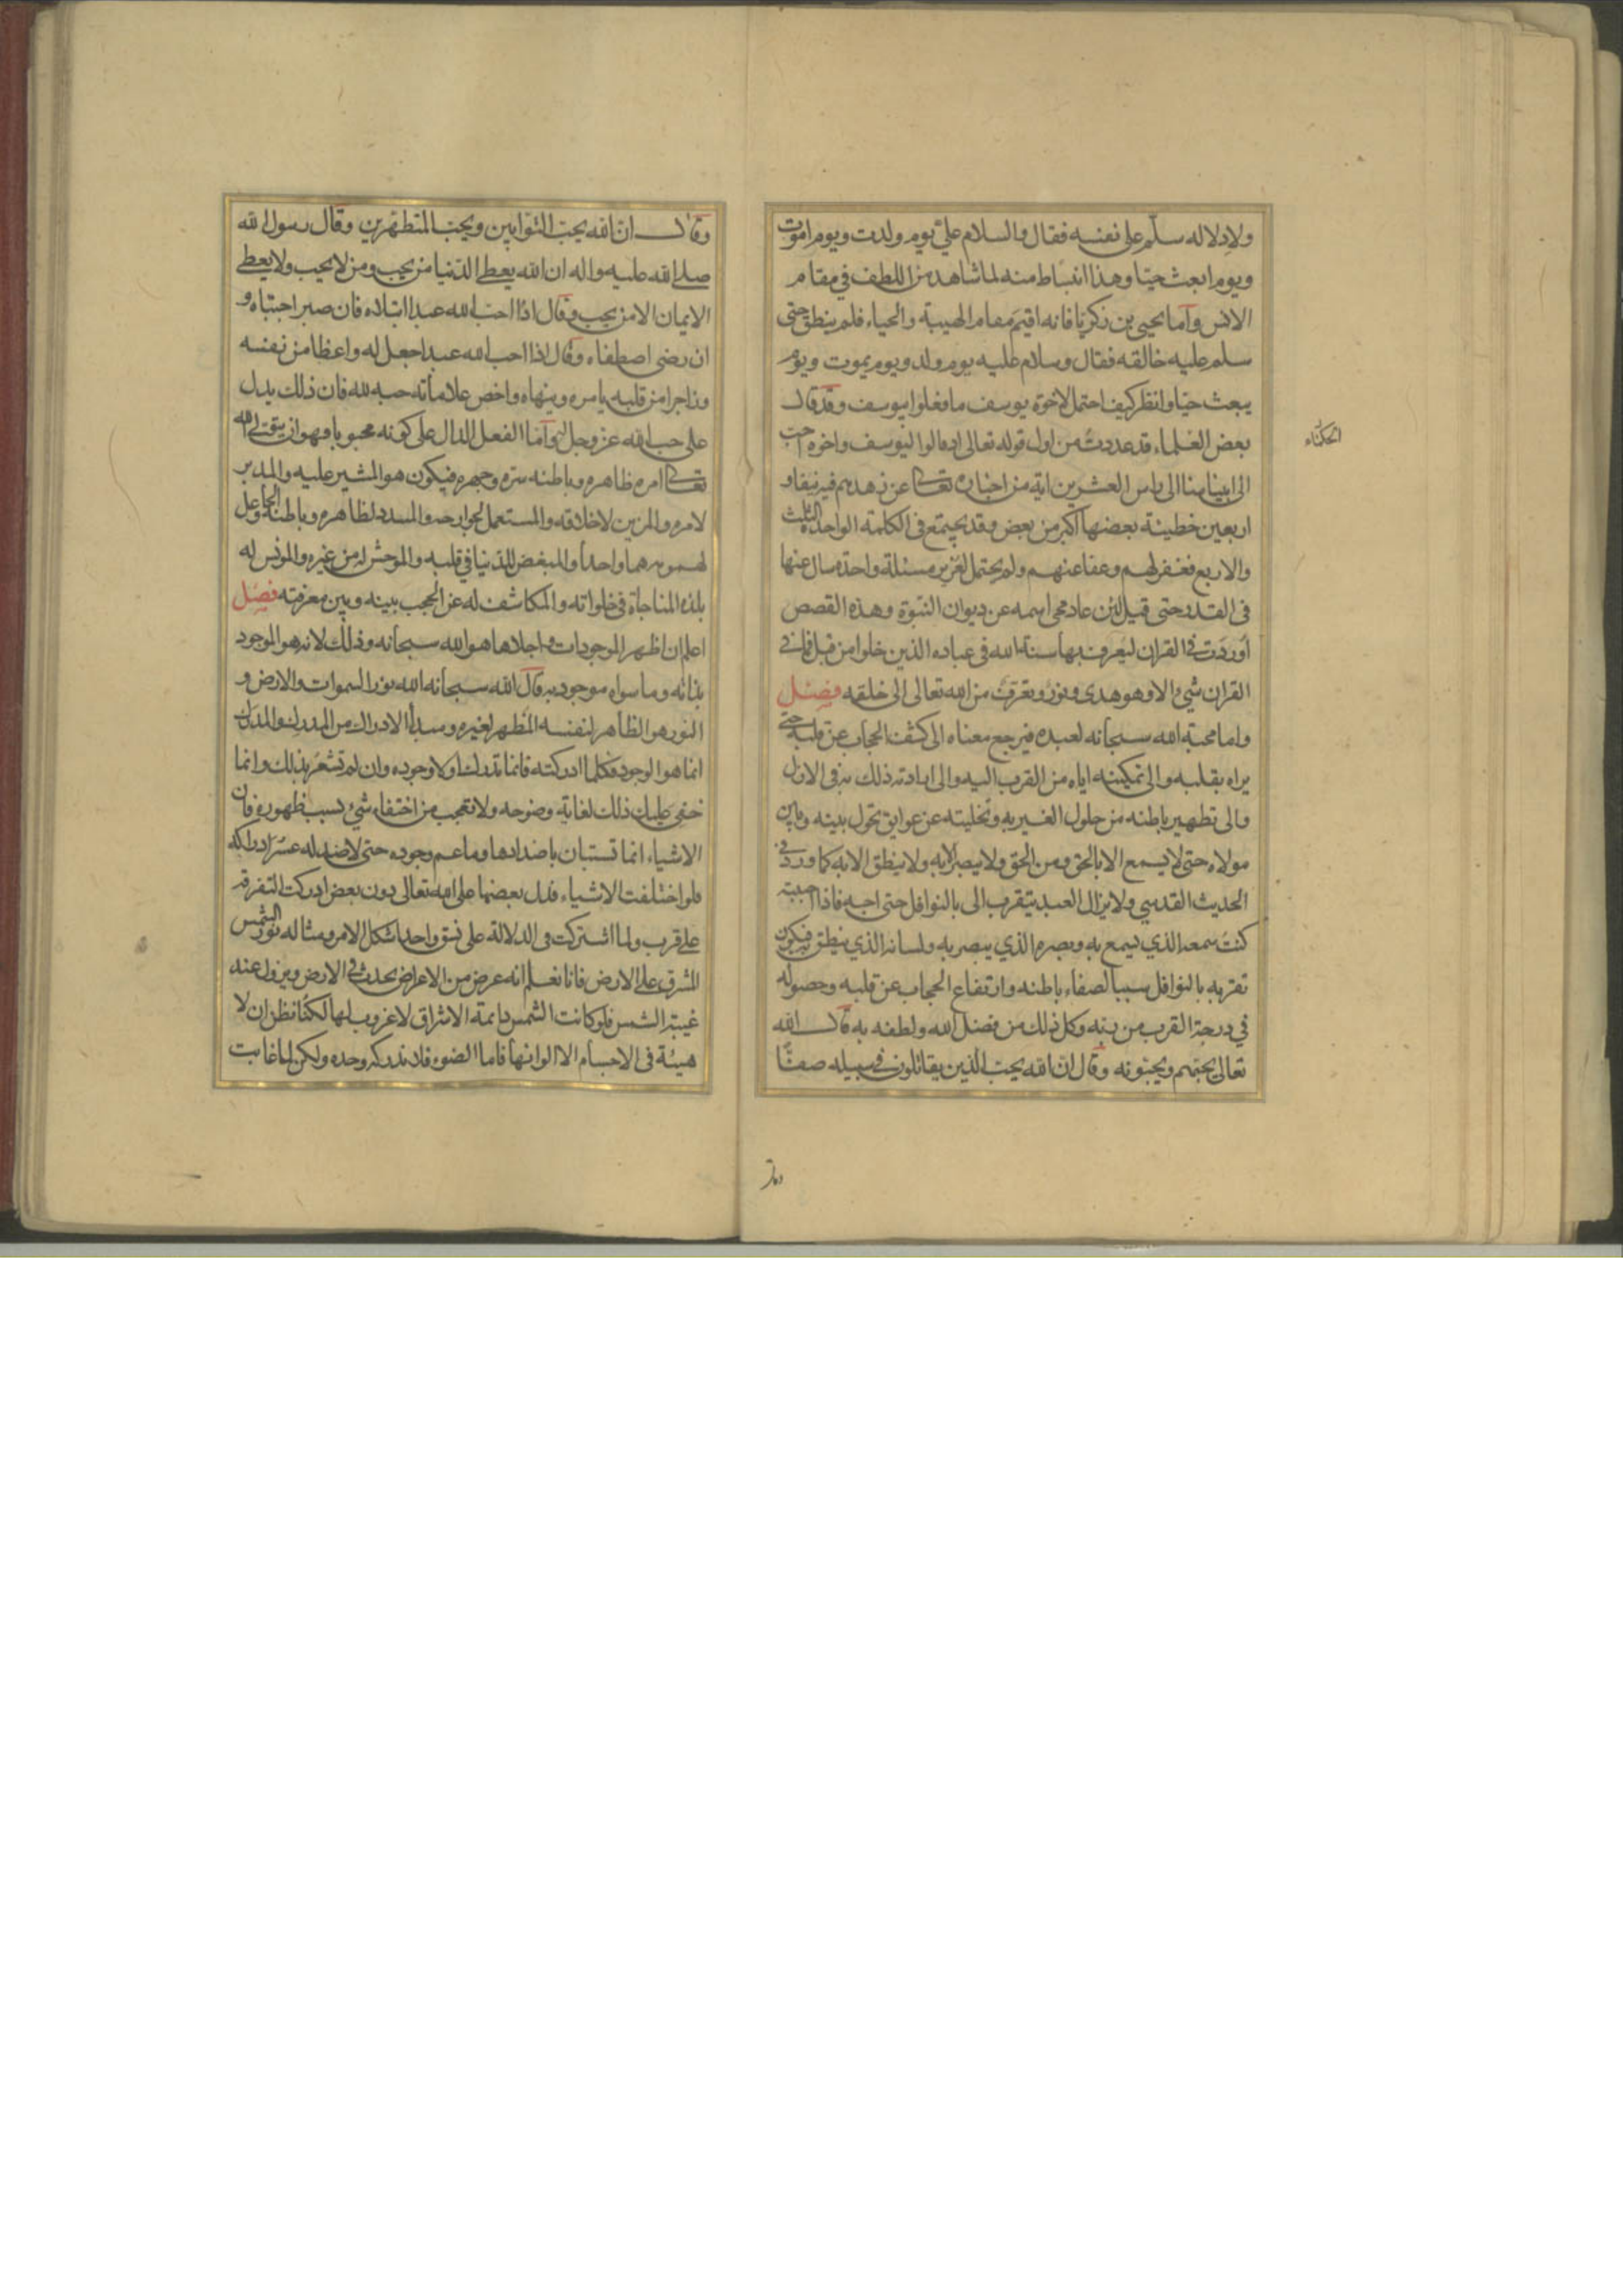 ولادلاله سلّم على نفسه فقال والسلام علىّ يوم ولدت ويوم اموت
ويوم ابعث حيّا وهذا انبساط منه لما شاهد من اللطف في مقام
الانس وأما يحيى بن زكريا فانه اقيم مقام الهيبة والحياء فلم ينطق حتى
سلم عليه خالقه فقال وسلام عليه يوم ولد ويوم يموت ويوم
يبعث حيّا وانظر كيف احتمل لاخوة يوسف ما فعلوا بيوسف وقد قال
بعض العلماء قد عددت من اول قوله تعالى اذ قالوا ليوسف واخوه احب
الحكماء
الى ابينا منا الى راس العشرين اية من اخباره تعالى عن زهدهم فيه نيفا و
اربعين خطيئة بعضها اكبر من بعض وقد يجتمع في الكلمة الواحدة الثلث
والاربع فغفر لهم وعفا عنهم ولم يحتمل لعزير مسئلة واحدة سال عنها
في القدر حتى قيل لئن عاد محى اسمه عن ديوان النبوّة وهذه القصص
اوردت في القران ليعرف بها سنة الله في عباده الذين خلوا من قبل فما في
القران شئ الا وهو هدى ونور وتعرّف من الله تعالى الى خلقه فصل
واما محبة الله سبحانه لعبده فيرجع معناه الى كشف الحجاب عن قلبه حتى
يراه بقلبه والى تمكينه اياه من القرب اليه والى ارادته ذلك به في الازل
والى تطهير باطنه من حلول الغير به وتخليته عن عوايق تحول بينه وبين
مولاه حتى لا يسمع الا بالحق ومن الحق ولا يبصر الا به ولا ينطق الا به كما ورد في
الحديث القدسي ولا يزال العبد يتقرب الى بالنوافل حتى احبه فاذا احببته
كنت سمعه الذي يسمع به وبصره الذي يبصر به ولسانه الذي ينطق به فيكون
تقربه بالنوافل سببا لصفاء باطنه وارتفاع الحجاب عن قلبه وحصوله
في درجة القرب من ربه وكل ذلك من فضل الله ولطفه به قال الله
تعالى يحبّهم ويحبّونه وقال ان الله يحبّ الذين يقاتلون في سبيله صفّا
وقال ان الله يحبّ التوّابين ويحبّ المتطهّرين وقال رسول الله
صلى الله عليه واله ان الله يعطى الدّنيا من يحب ومن لا يحب ولا يعطى
الايمان الا من يحب وقال اذا احبّ الله عبدا ابتلاه فان صبر اجتباه و
ان رضى اصطفاه وقال اذا احب الله عبدا جعل له واعظا من نفسه
وزاجرا من قلبه يامره وينهاه واخص علاماته حبه لله فان ذلك يدل
على حب الله عزّ وجل له وأما الفعل الدال على كونه محبوبا فهو ان يتولى الله
تعالى امره ظاهره وباطنه سرّه وجهره فيكون هو المشير عليه والمدبر
لامره والمزين لاخلاقه والمستعمل لجوارحه والمسدد لظاهره وباطنه والجاعل
لهمومه هما واحدا والمبغض للدّنيا في قلبه والموحش له من غيره والمونس له
بلذة المناجاة في خلواته والمكاشف له عن الحجب بينه وبين معرفته فصل
اعلم ان اظهر الموجودات واجلاها هو الله سبحانه وذلك لانه هو الموجود
بذاته وما سواه موجود به قال الله سبحانه الله نور السموات والارض و
النور هو الظاهر لنفسه المظهر لغيره ومبدأ الادراك من المدرك والمدرك
انما هو الوجود فكلما ادركته فانما تدرك اولا وجوده وان لم تشعر بذلك وانما
خفى عليك ذلك لغاية وضوحه ولا تعجب من اختفاء شئ بسبب ظهوره فان
الاشياء انما تستبان باضدادها وما عم وجوده حتى لا ضد له عسر ادراكه
فلو اختلفت الاشياء فدل بعضها على الله تعالى دون بعض ادركت التفرقة
على قرب ولما اشتركت في الدلالة على نسق واحد اشكل الامر ومثاله نور الشمس
المشرق على الارض فانا نعلم انه عرض من الاعراض يحدث في الارض ويزول عند
غيبة الشمس فلو كانت الشمس دايمة الاشراق لا غروب لها لكنّا نظن ان لا
هيئة في الاجسام الا الوانها فاما الضوء فلا ندركه وحده ولكن لما غابت